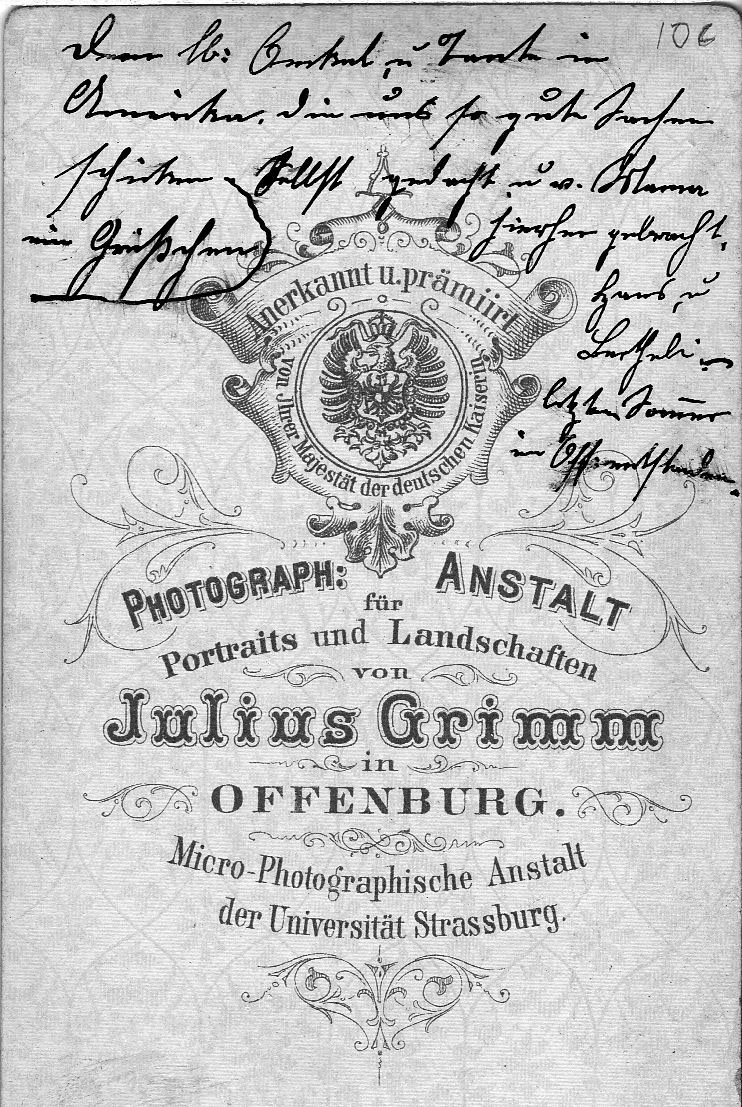 106
Dem lb: Onkel u Tante in
Amerika, die uns so gute Sachen
schicken
ein Grüßchen
Selbst gedacht u v. Mama
hierher gebracht.
Hans u
letzten Sommer
im
Anerkannt u. prämiirt
von Ihrer Majestät der deutschen Kaiserin.
PHOTOGRAPH: ANSTALT
für
Portraits und Landschaften
von
Julius Grimm
in
OFFENBURG.
Micro-Photographische Anstalt
der Universität Strassburg.